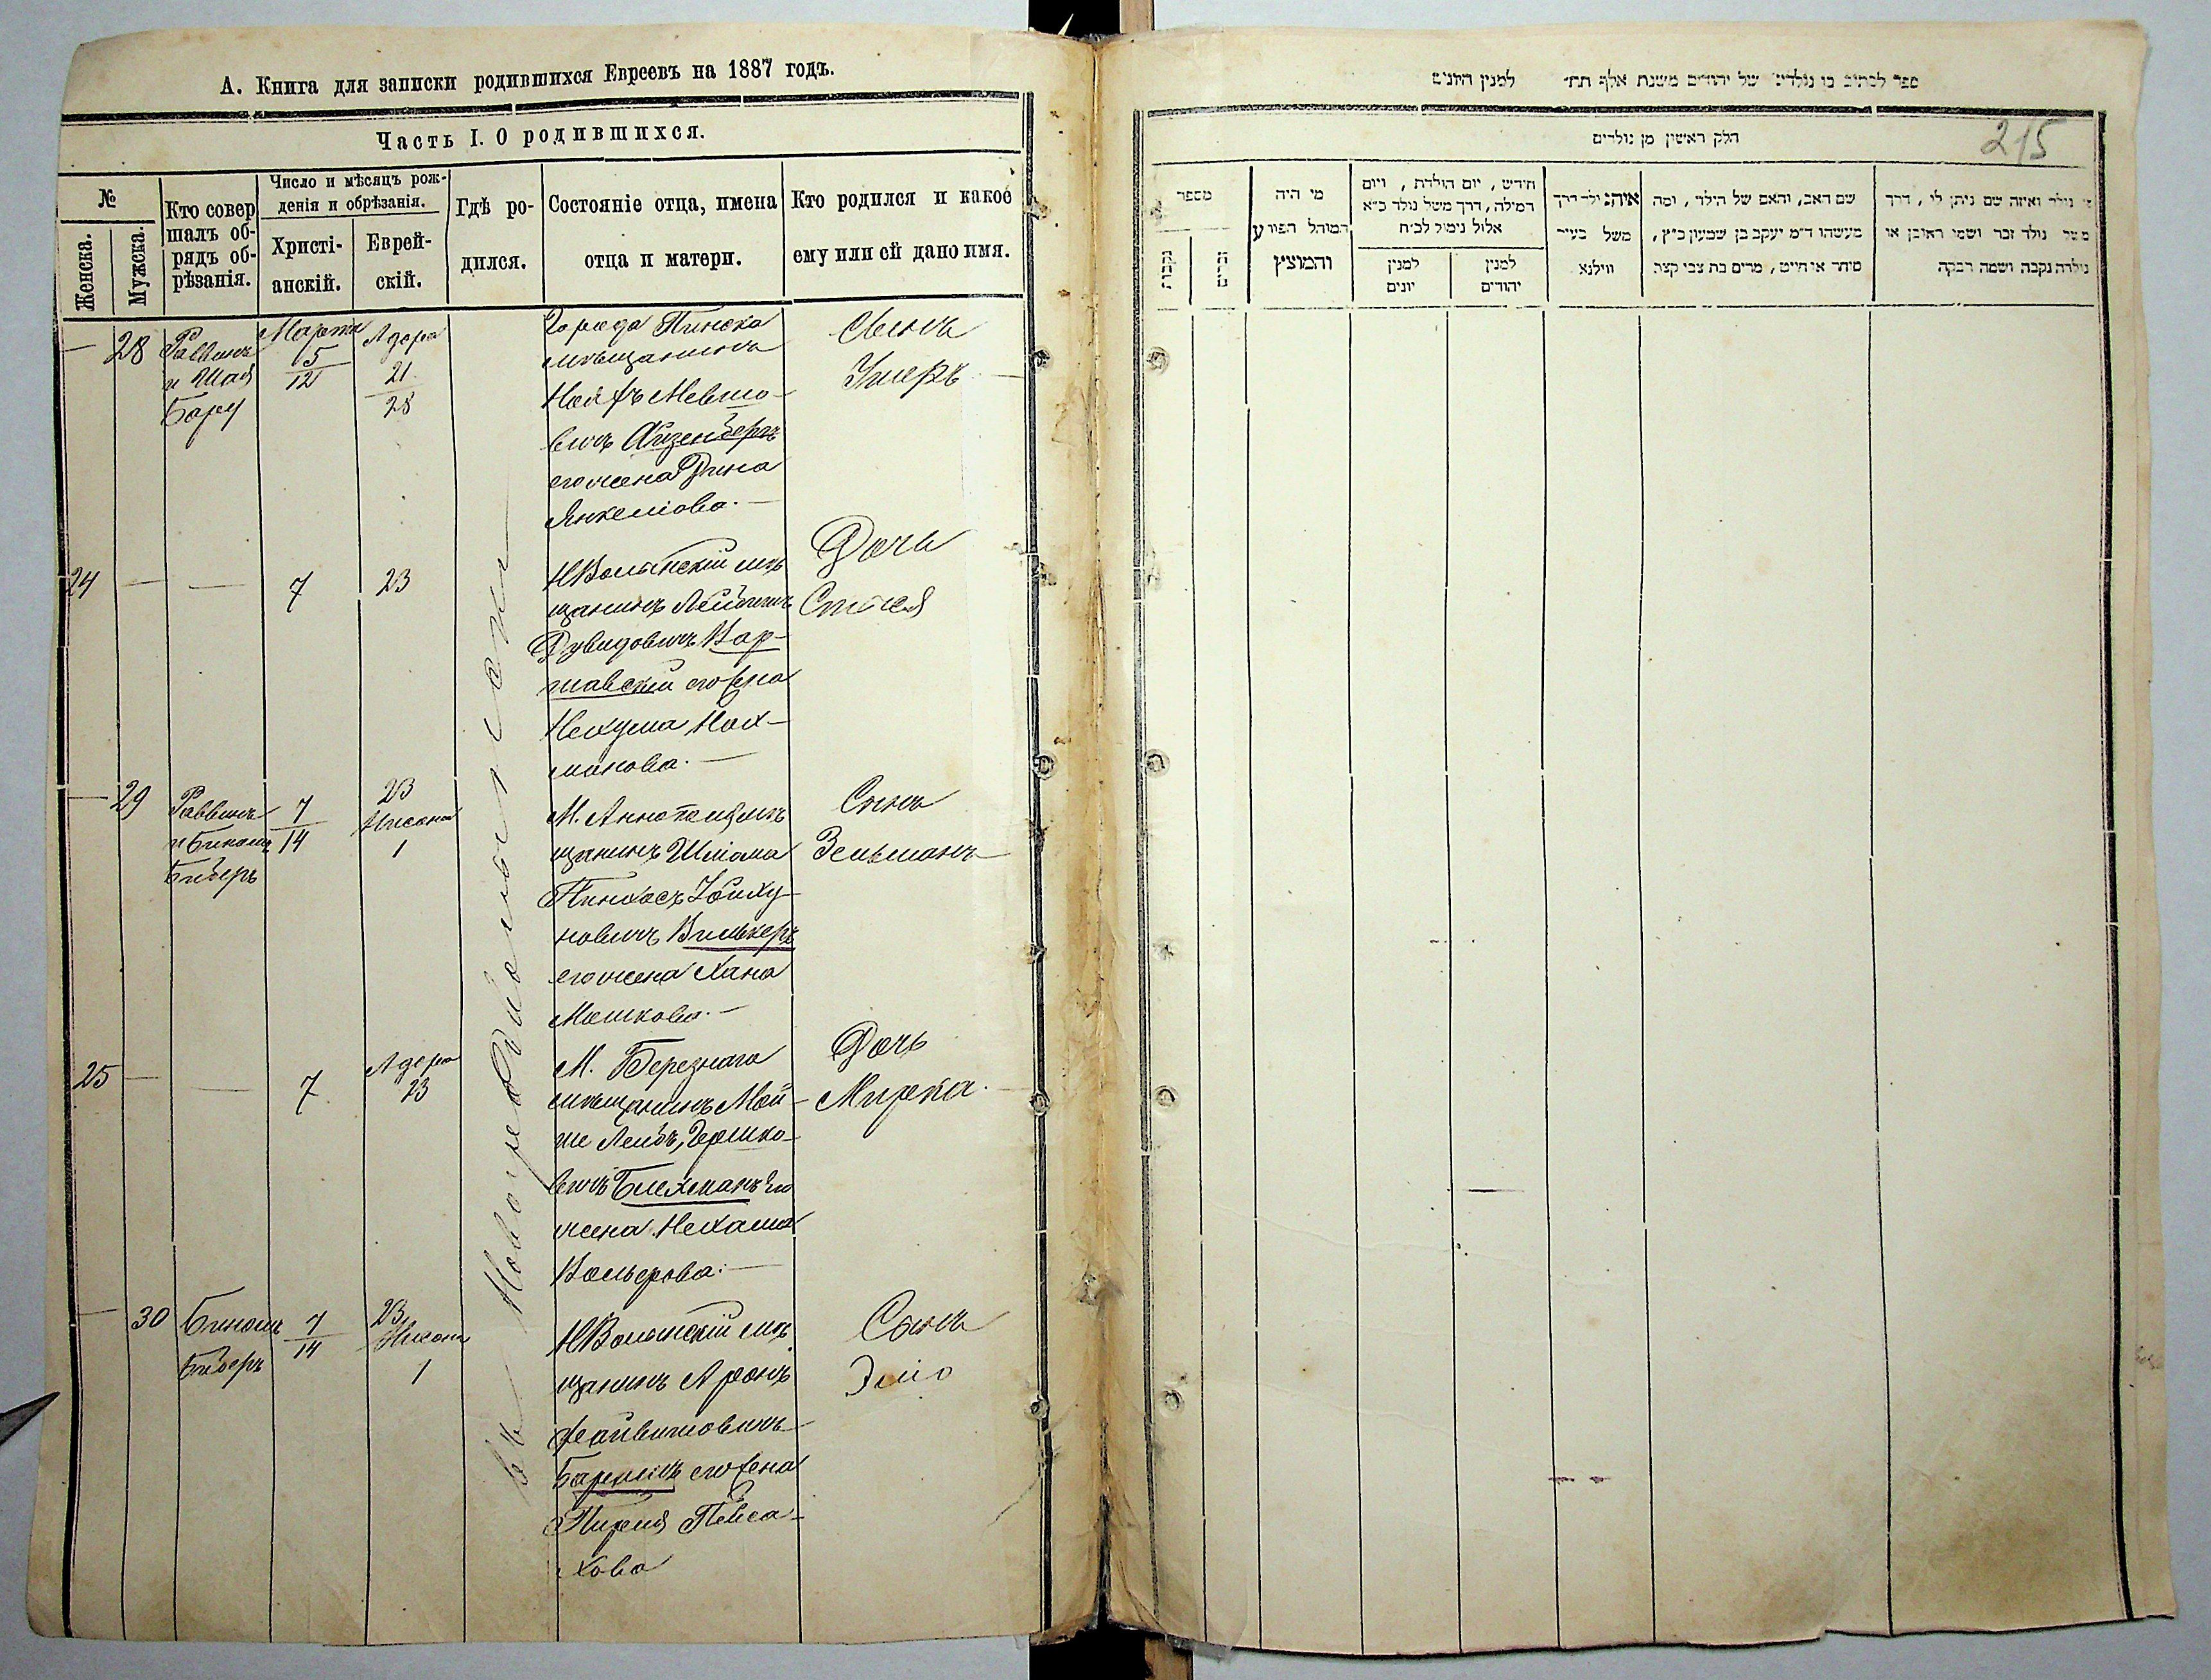 А. Книга для записки родившихся Евреевъ на 1887 годъ.
Часть I. О родившихся.
№
Женска.
Мужска.
Кто совер
шалъ об-
рядъ об-
рѣзанія.
Число и мѣсяцъ рож-
денія и обрѣзанія.
Христі-
анскій.
Еврей-
скій.
Гдѣ ро-
дился.
Состояніе отца, имена
отца и матери.
Кто родился и какое
ему или ей дано имя.
— 28
Раввинъ
и Шая
Марта
5
12
Адара
21
28
Города Пинска
мѣщанинъ
вичъ Айзенбергъ
его жена Дина
Янкелiова. —
Сынъ
Умеръ —
24 — —
7
23
НВолынскiй мѣ
щанинъ
Дувидовичъ Вар-
шавскiй его жена
Нехума Нах-
манова. —
Дочь
— 29
Раввинъ
и Биномъ
Биберъ
7
14
23
Нисана
1
М. Аннополя мѣ
щанинъ Шлiома
Пинхасъ
новичъ
его жена Хана
Мошкова. —
Сынъ
Зельманъ
25 — —
7
Адара
23
М. Березнаго
мѣщанинъ Мой-
ше Лейбъ Гершко-
вичъ Блехманъ его
жена Нехама
Вольфова. —
Дочь
Мирка. —
— 30
Биномъ
Биберъ
7
14
23
Нисана
1
НВолынскiй мѣ
щанинъ Аронъ
Файвишовичъ
его жена
Пирля Пейса-
хова
Сынъ
Элiо
въ Новоградволынскѣ
ספר לכתוב בו נולדים של יהודים משנת אלף תת׳ למנין היונים
215
חלק ראשין מן נולדים
מספר
נקבות
זכרים
מי היה
המוהל הפורע
והמוצץ
חידש, יום הולדת, ויום
המילה, דרך משל נולד כ״א
אלול נימול לכ״ח
למנין
יונים
למנין
יהודים
איה נולד דרך
משל בעיר
ווילנא
שם האב, והאם של הילד, ומה
מעשהו ד״מ יעקב בן שמעון כ״ץ,
סוחר או חייט, מרים בת צבי קצת
מי נולד ואיזה שם ניתן לו, דרך
משל נולד זכר ושמו ראובן או
נולדה נקבה ושמה רבקה